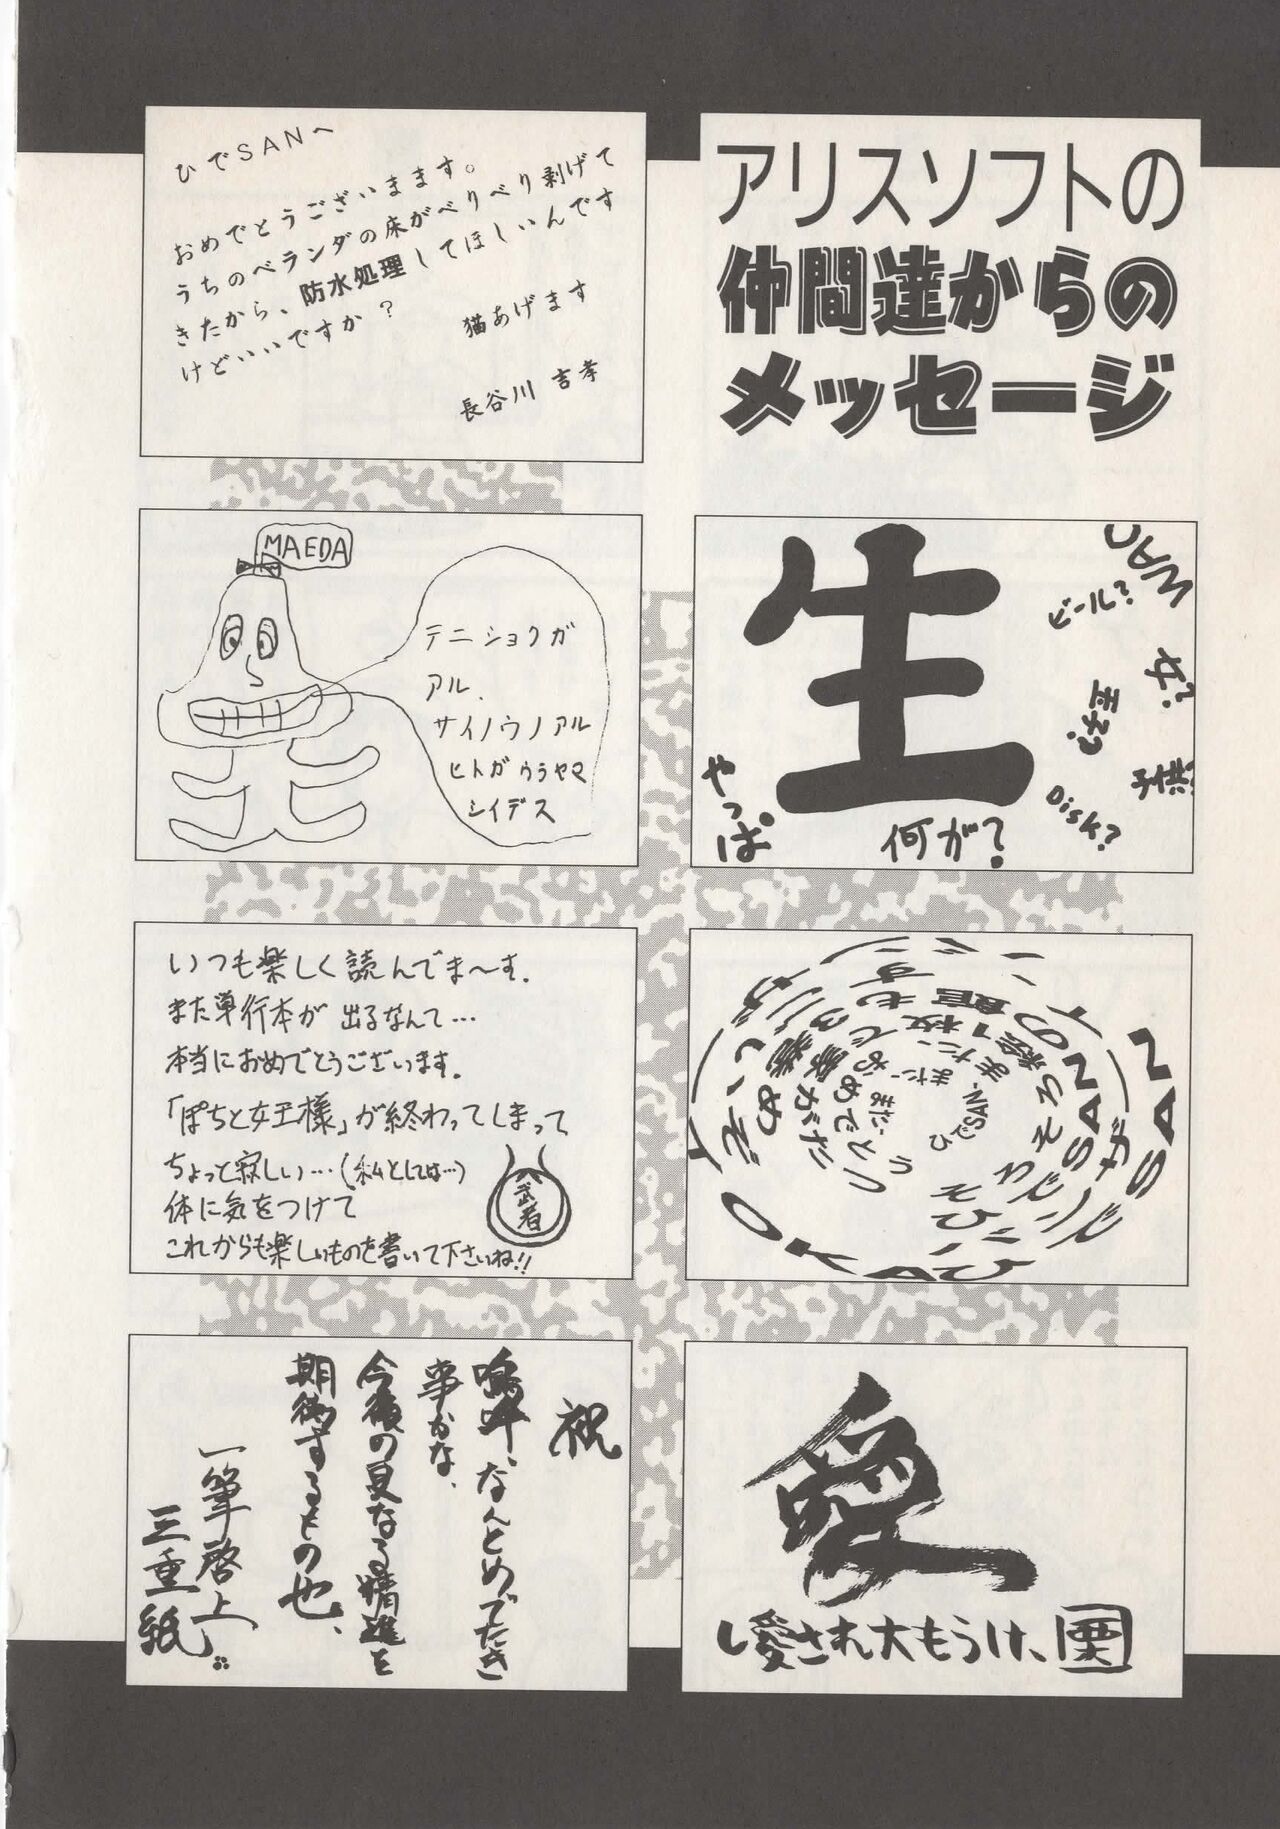 アリスソフトの
仲間達からの
メッセージ
ひでSANへ
おめでとうございまます。
うちのベランダの床がべりべり剥げて
きたから、防水処理してほしいんです
けどいいですか？
猫あげます
長谷川 吉孝
生
やっぱ
何が？
ビール？
女？
Disk？
MAEDA
テニショクガ
アル、
サイノウノアル
ヒトガウラヤマ
シイデス
ひでSAN、
また、
いつも楽しく読んでま〜す.
また単行本が出るなんて…
本当におめでとうございます.
「ぽちと女王様」が終わってしまって
ちょっと寂しい…(私としては…)
体に気をつけて
これからも楽しいものを書いて下さいね!!
武者
愛
し愛され大もうけ、
祝
嗚呼、なんとめでたき
事かな、
今後の更なる精進を
期待するもの也、
一筆啓上
三重紙